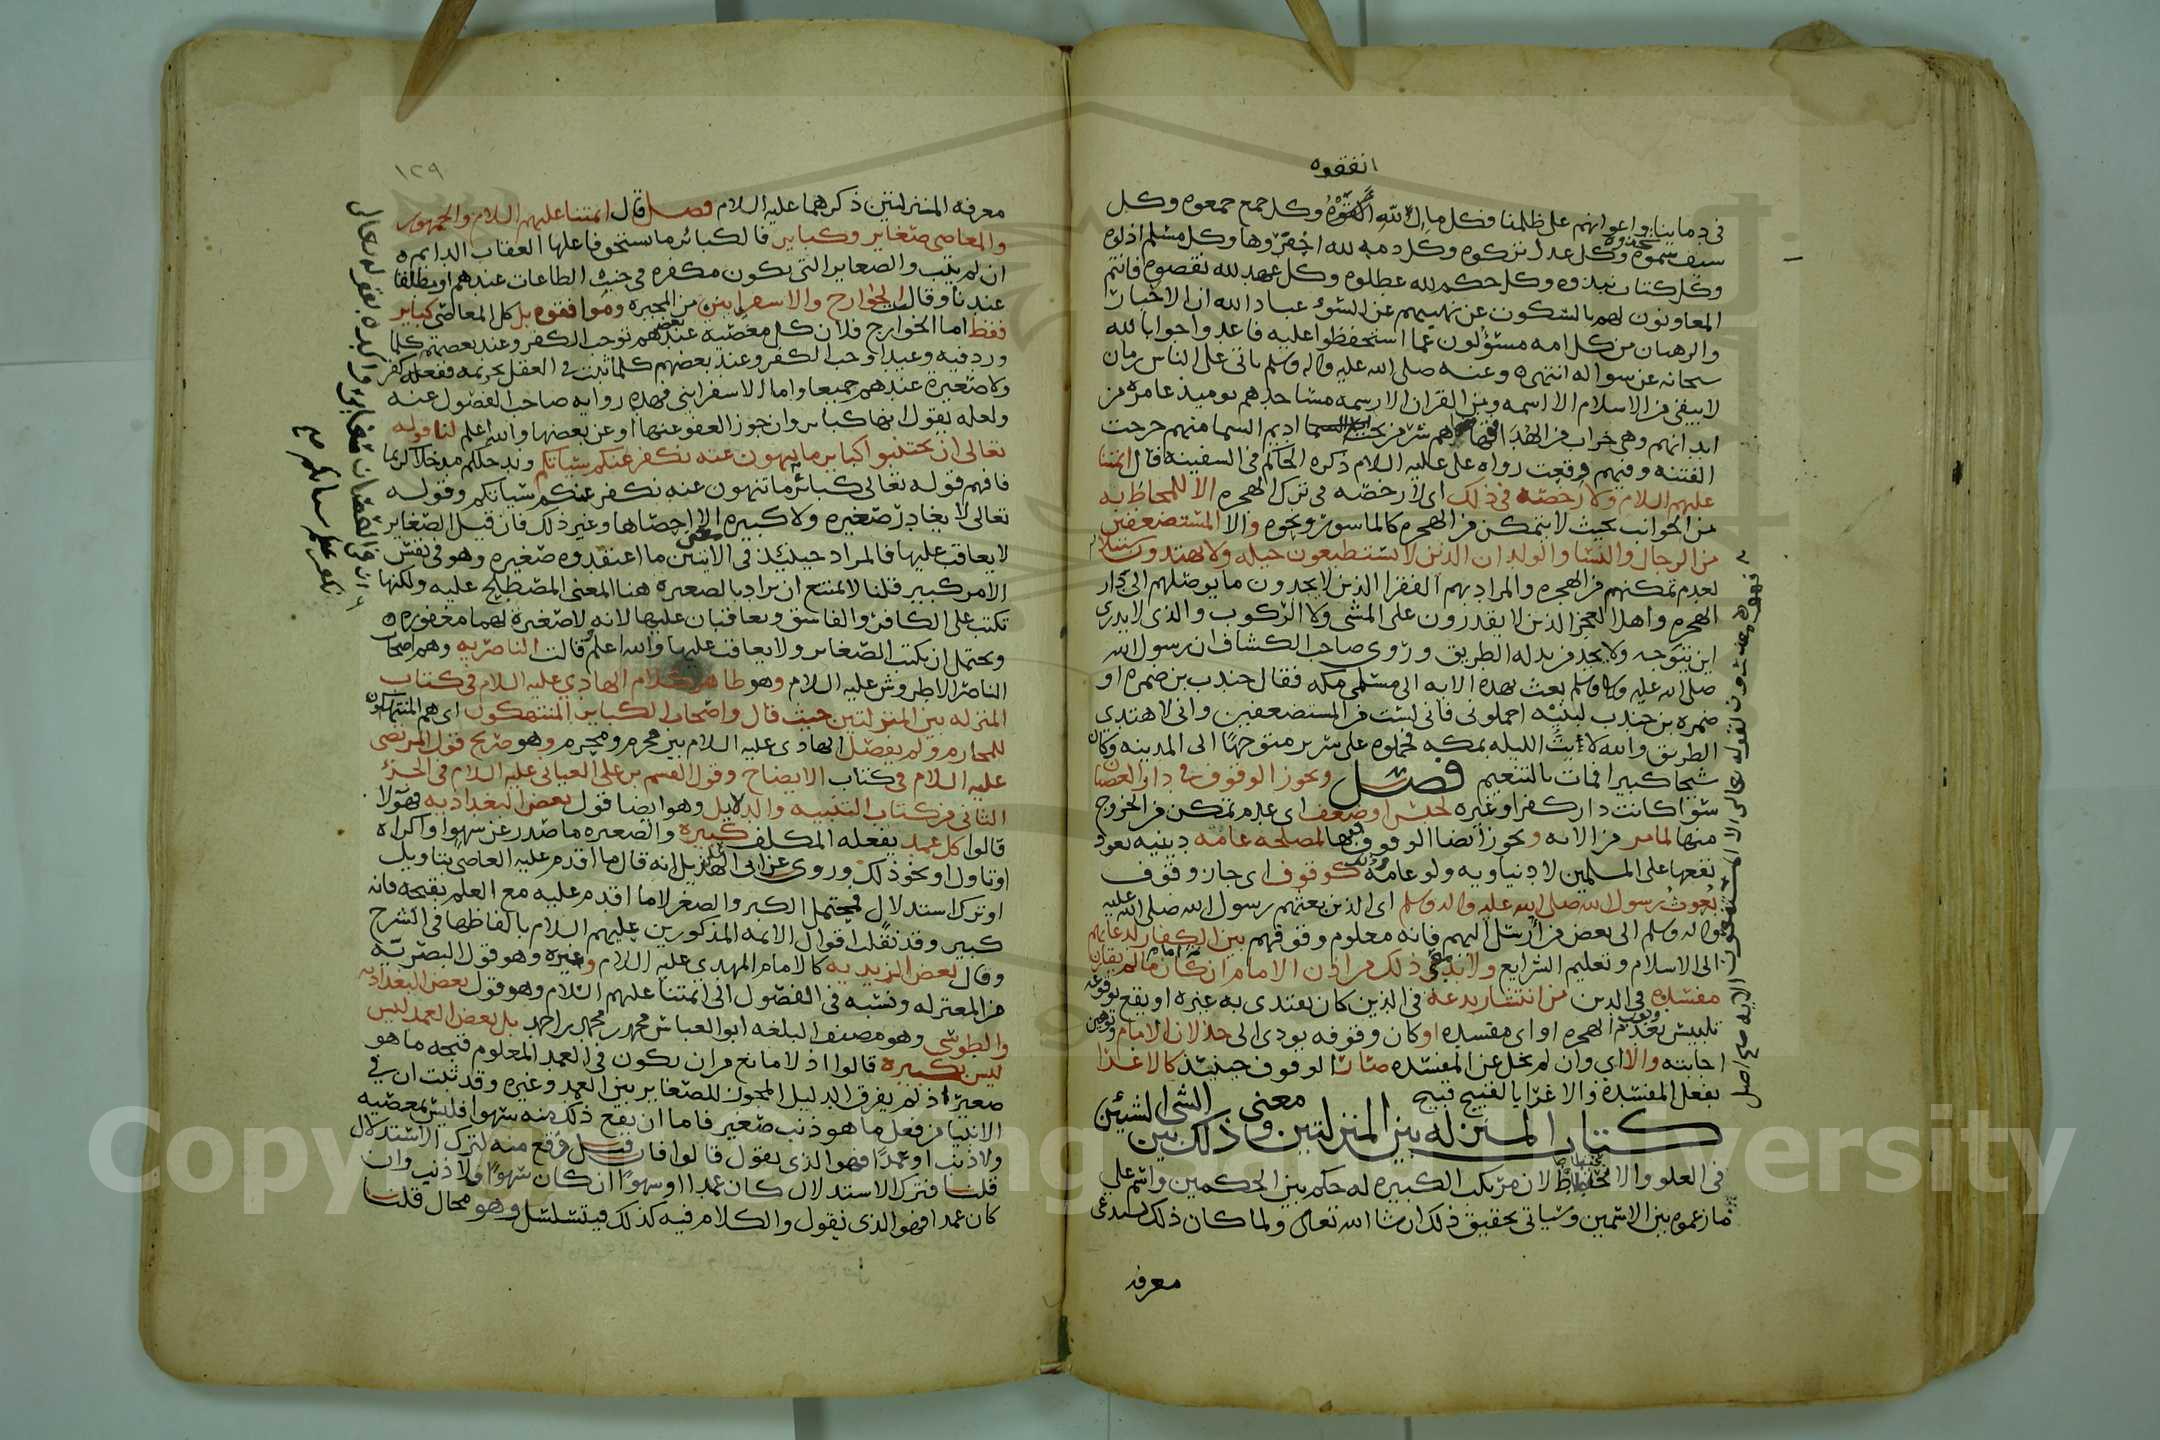 انفقوه
في دماينا واعوانهم على ظلمنا فكل مال لله انفقوه وكل جمع جمعوه وكل
سيف سموه شحذوه وكل عدل تركوه وكل ذمه لله اخفروها وكل مسلم اذلوه
وكل كتاب نبذوه وكل حكم لله عطلوه وكل عهد لله نقضوه فانتم
المعاونون لهم بالسكوت عن نهيهم عن السوء عباد الله ان الاحبار
والرهبان من كل امه مسؤلون عما استحفظوا عليه فاعدوا جوابا لله
سبحانه عن سواله انتهى وعنه صلى الله عليه واله وسلم ياتي على الناس زمان
لا يبقى من الاسلام الا اسمه ومن القران الا رسمه مساجدهم يوميذ عامرة من
ابدانهم وهي خراب من الهدى هم شر من تحت اديم السما منهم خرجت
الفتنه وفيهم وقعت رواه علي عليه السلام ذكره الحاكم في السفينه قال ايمتنا
عليهم السلام ولا رخصه في ذلك اى لا رخصه في ترك الهجره الا للمحاط به
من الجوانب بحيث لا يتمكن من الهجره كالماسور ونحوه والا المستضعفين
من الرجال والنسا والولدان الذين لا يستطيعون حيله ولا يهتدون سبيلا
لعدم تمكنهم من الهجره والمراد بهم الفقرا الذين لا يجدون ما يوصلهم الى دار
الهجره واهل العجز الذين لا يقدرون على المشي ولا الركوب والذي لا يدري
اين يتوجه ولا يجد من يدله الطريق وروى صاحب الكشاف ان رسول الله
صلى الله عليه واله وسلم بعث بهذه الايه الى مسلمي مكه فقال جندب بن ضمره او
ضمره بن جندب لبنيه احملوني فاني لست من المستضعفين واني لاهتدي
الطريق والله لا ابيت الليله بمكه فحملوه على سرير متوجها الى المدينه وكان
شيخا كبيرا فمات بالتنعيم فصل ويجوز الوقوف في دار العصيان
سوا كانت دار كفر او غيره لحبس او ضعف اى عدم تمكن من الخروج
منها لما مر من الايه ويجوز ايضا الوقوف فيها لمصلحه عامه دينيه يعود
نفعها على المسلمين لا دنياويه ولو عامه كوقوف اى جاز وقوف
بعوث رسول الله صلى الله عليه واله وسلم اى الذين بعثهم رسول الله صلى الله عليه
واله وسلم الى بعض من ارسل اليهم فانه معلوم وقوفهم بين الكفار لدعايهم
الى الاسلام وتعليم الشرايع ولا بد في ذلك من اذن الامام ان كان امام ما لم يقارن
مفسده في الدين من انتشار بدعه في الذين كان يقتدى به غيره او يقع بوقوفه
تلبيس بعدم وجوب الهجره او اى مفسده او كان وقوفه يودي الى خذلان الامام وتوهين
اجابته والا اى وان لم يخل عن المفسده صار الوقوف حينيذ كالاغرا
بفعل المفسده والاغرا بالقبيح قبيح
كتاب المنزله بين المنزلتين ومعنى ذلك الشي بين الشيئين
في العلو والانخفاض لان مرتكب الكبيره له حكم بين الحكمين واسم على
ما زعموه بين الاسمين وسياتي تحقيق ذلك ان شا الله تعالى ولما كان ذلك يستدعي
معرفه
١٢٩
معرفه المنزلتين ذكرهما عليه السلام فصل قال ايمتنا عليهم السلام والجمهور
والمعاصي صغاير وكباير فالكباير ما يستحق فاعلها العقاب الدايم
ان لم يتب والصغاير التي تكون مكفره في جنب الطاعات عندهم او مطلقا
عندنا وقال الخوارج والاسفراييني من المجبره وموافقوه بل كل المعاصي كباير
فقط اما الخوارج فلان كل معصيه عند بعضهم توجب الكفر وعند بعضهم كلما
ورد فيه وعيد اوجب الكفر وعند بعضهم كلما ثبت في العقل تحريمه ففعله كفر
ولا صغيرة عندهم جميعا واما الاسفرايني فهذه روايه صاحب الفصول عنه
ولعله يقول انها كباير وان جوز العفو عنها او عن بعضها والله اعلم لنا قوله
تعالى ان تجتنبوا كباير ما تنهون عنه نكفر عنكم سيئاتكم وندخلكم مدخلا كريما
فافهم قوله تعالى كباير ما تنهون عنه نكفر عنكم سيئاتكم وقوله
تعالى لا يغادر صغيره ولا كبيره الا احصاها وغير ذلك فان قيل الصغاير
لا يعاقب عليها فالمراد حينئذ في الايتين ما اعتقدوه صغيره وهو في نفس
الامر كبير قلنا لا يمتنع ان يراد بالصغيره هنا المعنى المصطلح عليه ولكنها
تكتب على الكافر والفاسق ويعاقبان عليها لانه لا صغيرة لهما مغفوره
ويحتمل ان يكتب الصغاير ولا يعاقب عليها والله اعلم قالت الناصريه وهم اصحاب
الناصر الاطروش عليه السلام وهو ظاهر كلام الهادي عليه السلام في كتاب
المنزله بين المنزلتين حيث قال واصحاب الكباير المنتهكون اى هم المنتهكون
للمحارم ولم يفصل الهادي عليه السلام بين محرم ومحرم وهو صريح قول المرتضى
عليه السلام في كتاب الايضاح وقول القسم بن علي العياني عليه السلام في الجزء
الثاني من كتاب التنبيه والدلايل وهو ايضا قول بعض البغداديه فهولا
قالوا كل عمد يفعله المكلف كبيرة والصغيره ما صدر عن سهو او اكراه
او تاول او نحو ذلك وروى عن ابي الهذيل انه قال ما اقدم عليه العاصي بتاويل
او ترك استدلال فيحتمل الكبر والصغر لا ما اقدم عليه مع العلم بقبحه فانه
كبير وقد نقلنا اقوال الايمه المذكورين عليهم السلام بالفاظها في الشرح
وقال بعض الزيديه كالامام المهدي عليه السلام وغيره وهو قول البصريه
من المعتزله ونسبه في الفصول الى ايمتنا عليهم السلام وهو قول بعض البغداديه
والطوسي وهو مصنف البلغه ابو العباس محمد بن احمد بل بعض العمد ليس
ليس بكبيره قالوا اذ لا مانع من ان يكون في العمد المعلوم قبحه ما هو
صغير اذ لم يفرق الدليل المجوز للصغاير بين العمد وغيره وقد ثبت ان في
الانبيا من فعل ما هو ذنب صغير فاما ان يقع ذلك منه سهوا فليس بمعصيه
ولا ذنب او عمدا فهو الذي نقول قالوا فان قيل وقع منه لترك الاستدلال
قلنا فترك الاستدلال كان عمدا او سهوا ان كان سهوا فلا ذنب وان
كان عمدا فهو الذي نقول والكلام فيه كذلك فيتسلسل وهو محال قلنا
Copy King Saud University